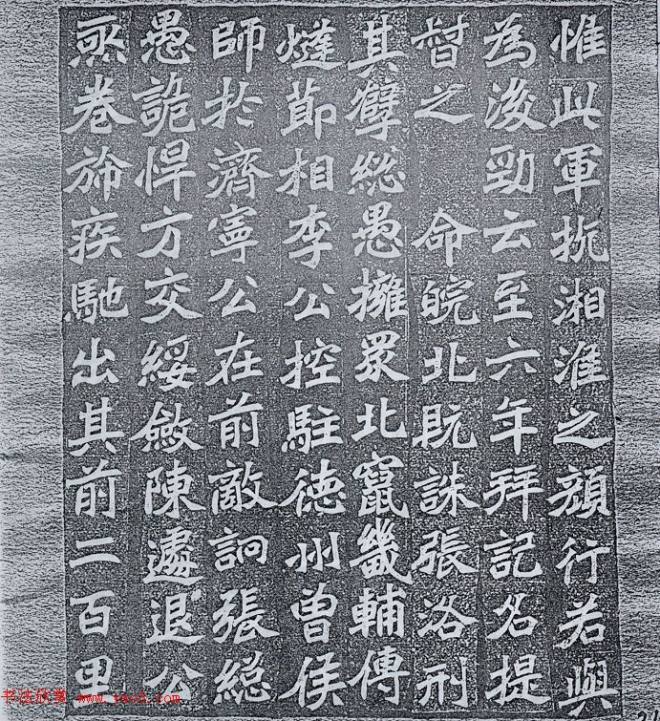 惟此軍抗湘淮之顏行若與
為後勁云至六年拜記名提
督之　命皖北既誅張洛刑
其孽總愚擁眾北竄畿輔傳
燧節相李公控駐德州曾侯
師於濟寧公在前敵詗張總
愚詭悍方交綏斂陳遽退公
亟卷旆疾馳出其前二百里
书法欣赏